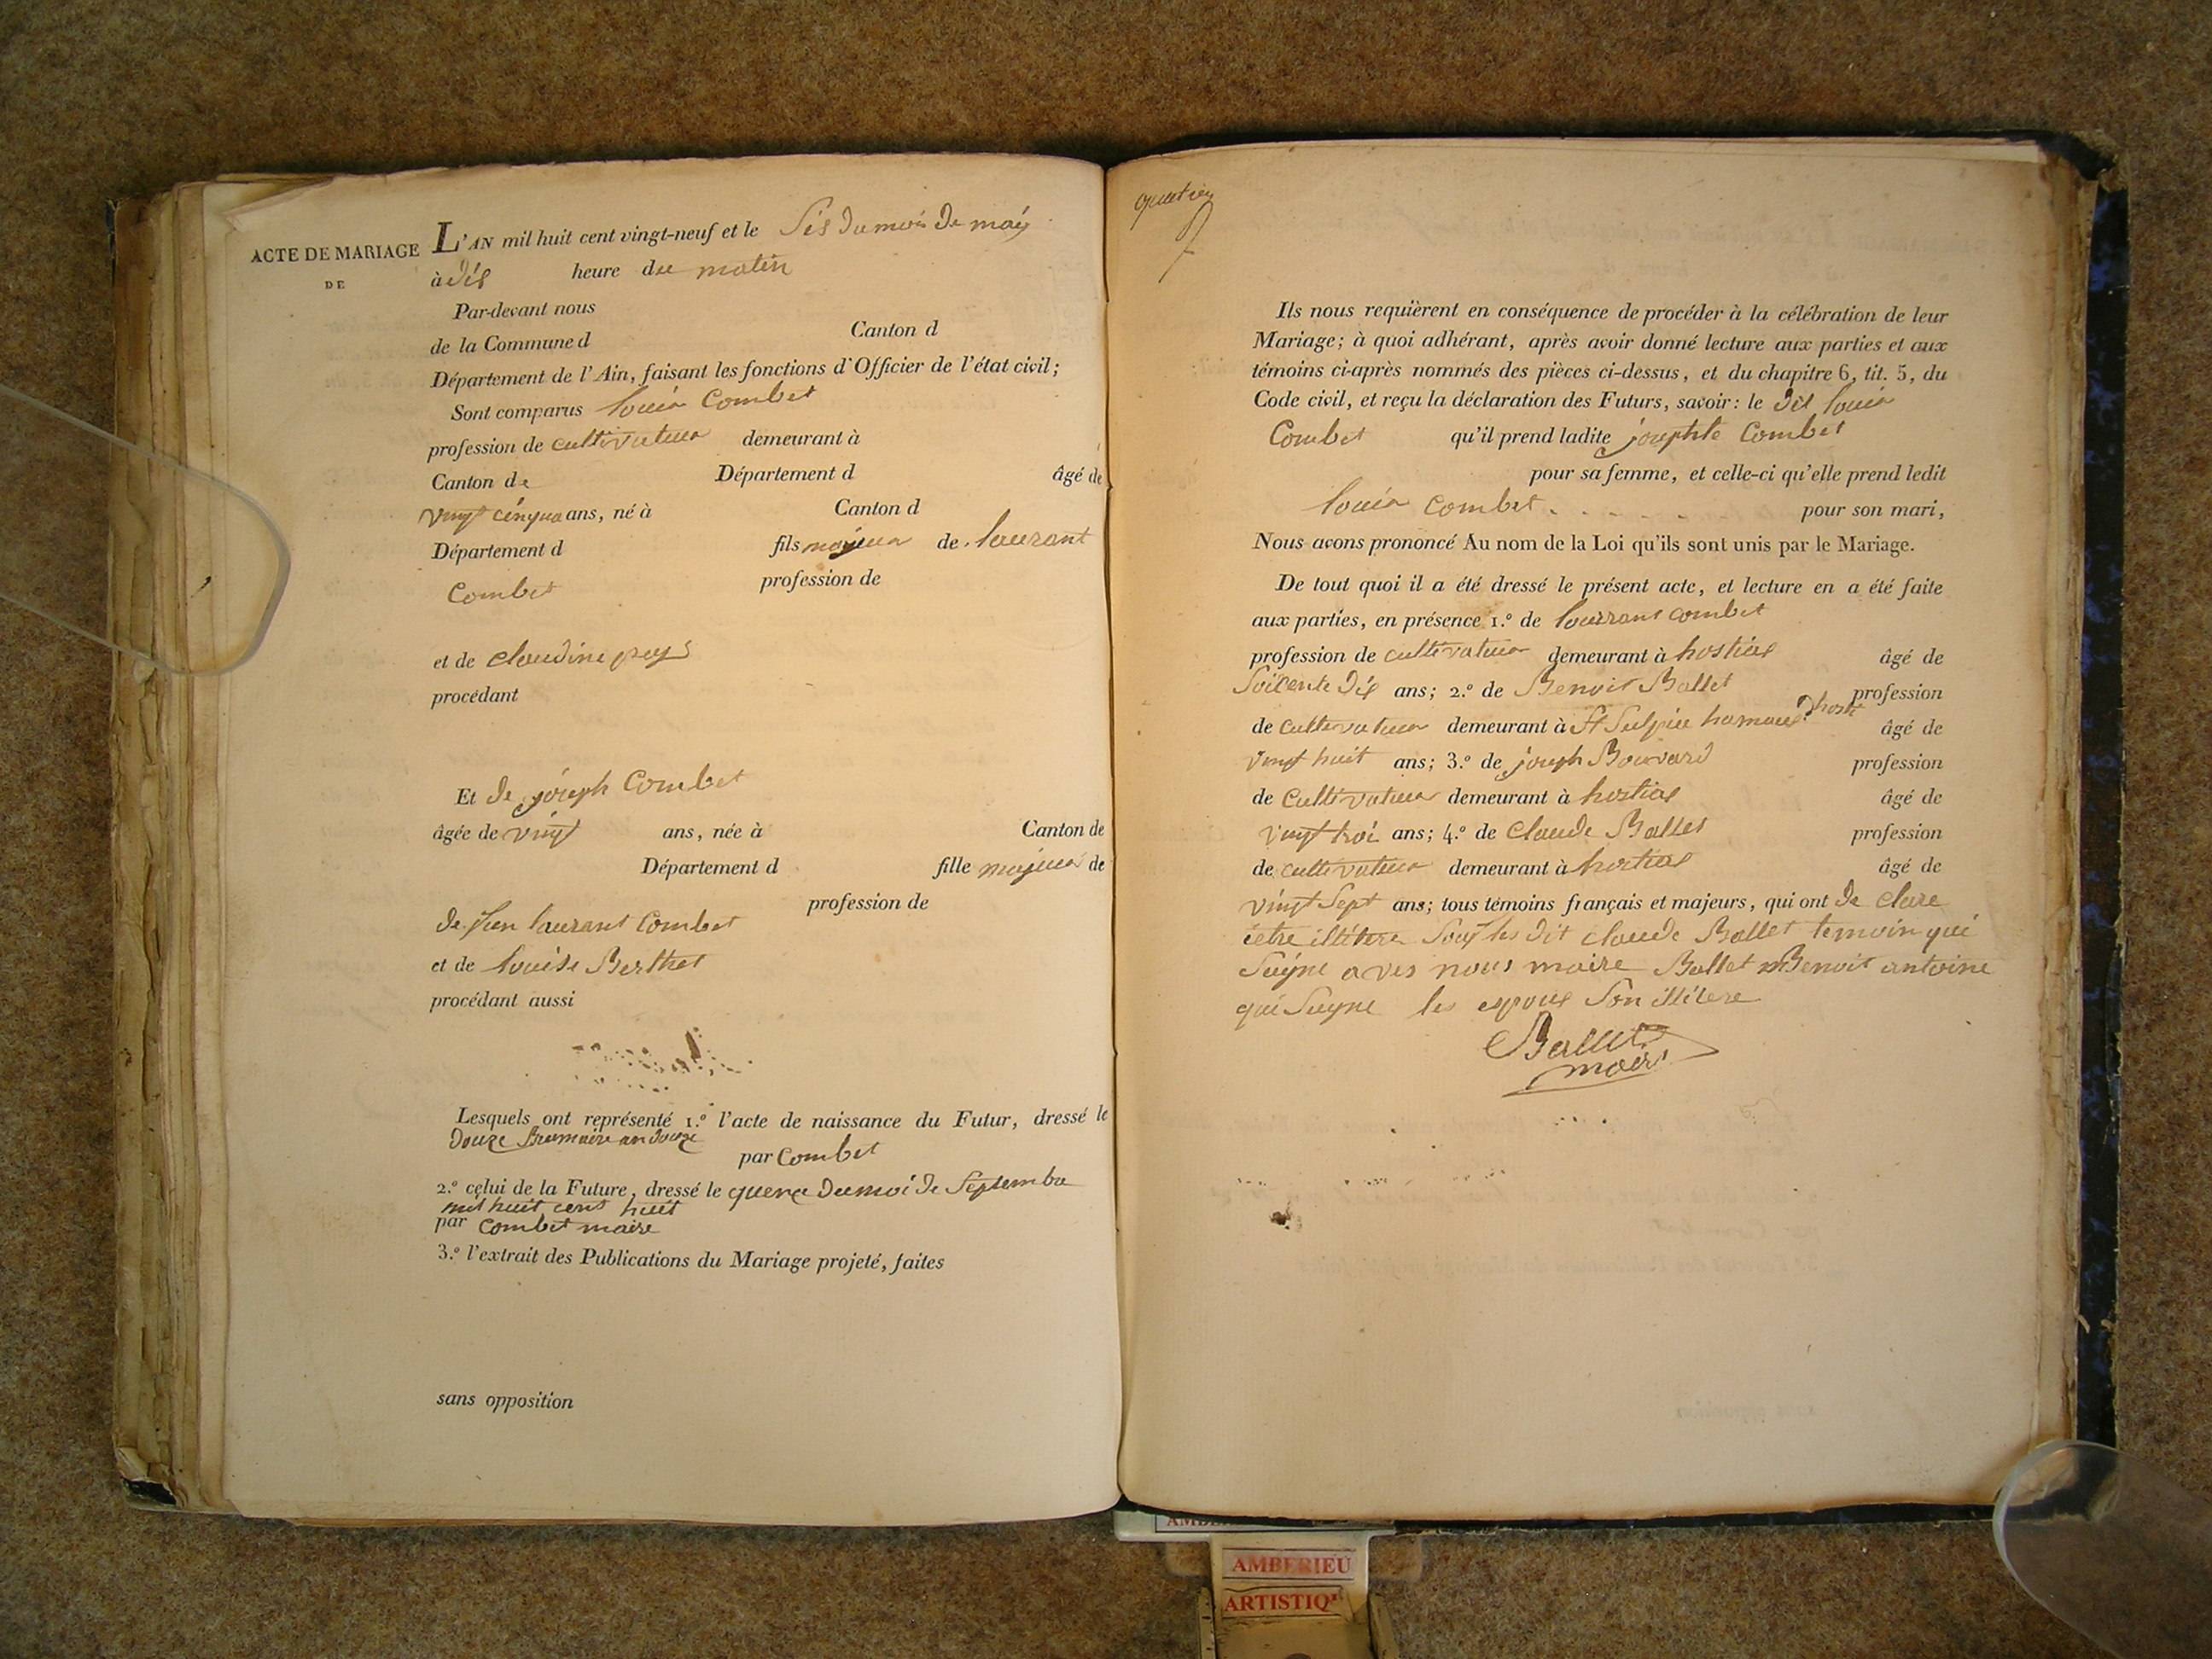 ACTE DE MARIAGE
DE
L'AN mil huit cent vingt-neuf et le Sis du mois de may
à dis heure du matin
Par-devant nous
de la Commune d Canton d
Département de l'Ain, faisant les fonctions d'Officier de l'état civil;
Sont comparus louis Combet
profession de cultivateur demeurant à
Canton de Département d âgé de
vingt cinq ans, né à Canton d
Département d fils majeur de laurant
Combet profession de
et de claudine peys
procédant
Et de joseph Combet
âgée de vingt ans, née à Canton de
Département d fille majeur de
profession de
de jean laurant Combet
et de louise Berthet
procédant aussi
Lesquels ont représenté 1.º l'acte de naissance du Futur, dressé le
douze Brumaire an douze
par Combet
2.º celui de la Future, dressé le quence du moi de Septembre
mil huit cent huit
par Combet maire
3.º l'extrait des Publications du Mariage projeté, faites
sans opposition
7
Ils nous requièrent en conséquence de procéder à la célébration de leur
Mariage; à quoi adhérant, après avoir donné lecture aux parties et aux
témoins ci-après nommés des pièces ci-dessus, et du chapitre 6, tit. 5, du
Code civil, et reçu la déclaration des Futurs, savoir: le dit louis
Combet qu'il prend ladite josephte Combet
pour sa femme, et celle-ci qu'elle prend ledit
louis Combet pour son mari,
Nous avons prononcé Au nom de la Loi qu'ils sont unis par le Mariage.
De tout quoi il a été dressé le présent acte, et lecture en a été faite
aux parties, en présence 1.º de laurant combet
profession de cultivateur demeurant à hostias âgé de
Soicente dix ans; 2.º de Benoit Ballet profession
de cultivateur demeurant à St Sulpice âgé de
vingt huit ans; 3.º de joseph Bouvard profession
de Cultivateur demeurant à hostias âgé de
vingt troi ans; 4.º de Claude Ballet profession
de cultivateur demeurant à hostias âgé de
vingt Sept ans; tous témoins français et majeurs, qui ont de clare
ietre illitere les dit claude Ballet temoin qui
Suyne aves nous maire Ballet Benoit antoine
qui Suyne les epoux Son illitere
Ballet
maire
AMBERIEU
ARTISTIQ